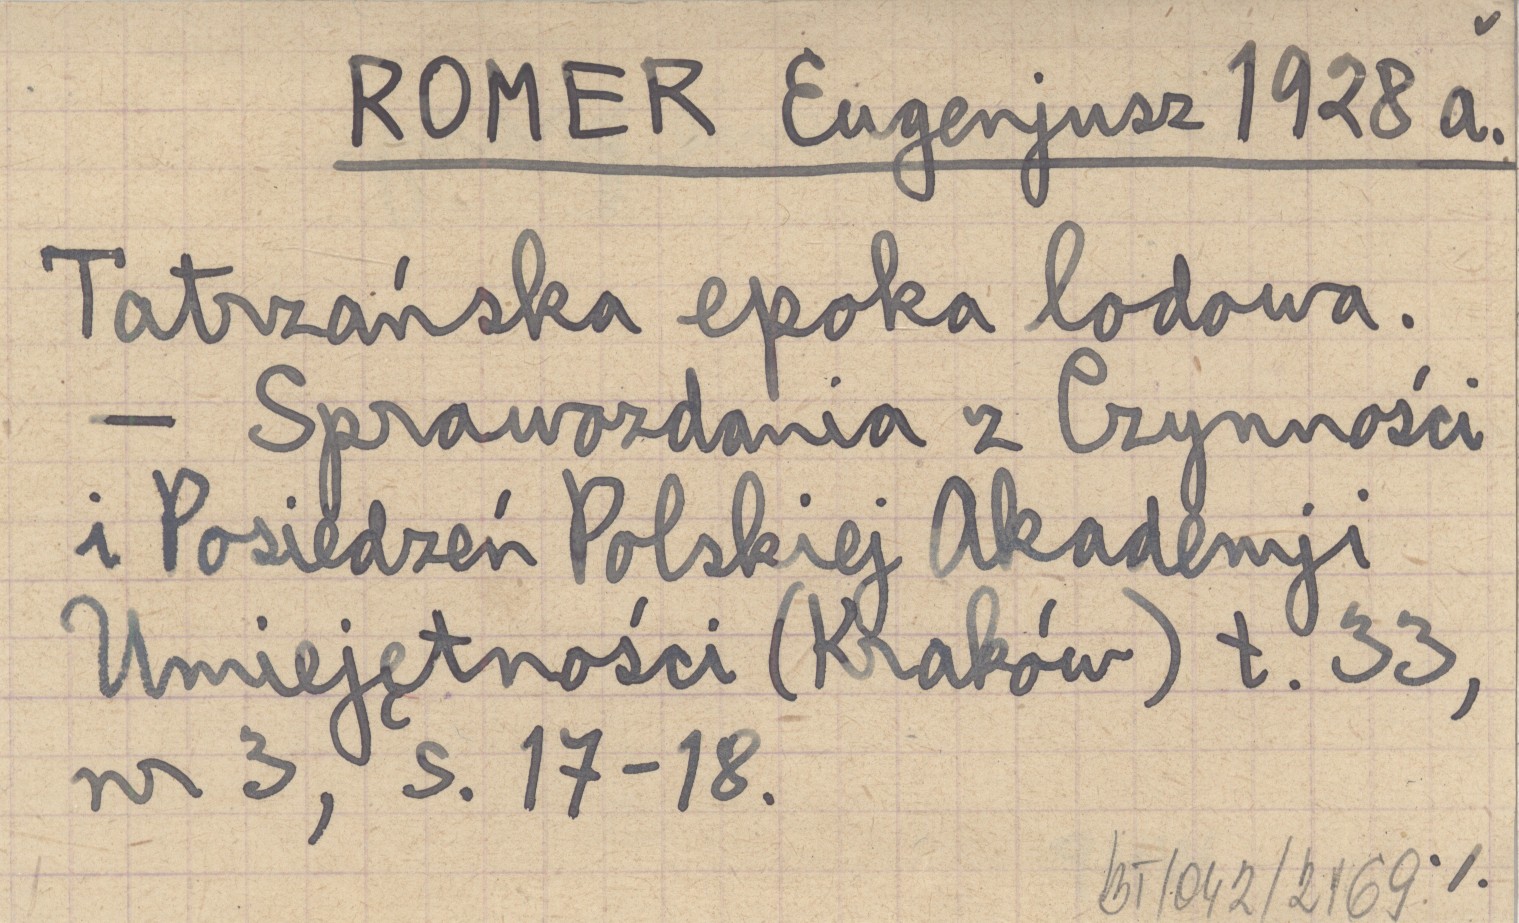 ROMER Eugenjusz 1928 a.
Tatrzańska epoka lodowa.
— Sprawozdania z Czynności
i Posiedzeń Polskiej Akademji
Umiejętności (Kraków) t. 33,
nr 3, s. 17-18.
BT/042/2169